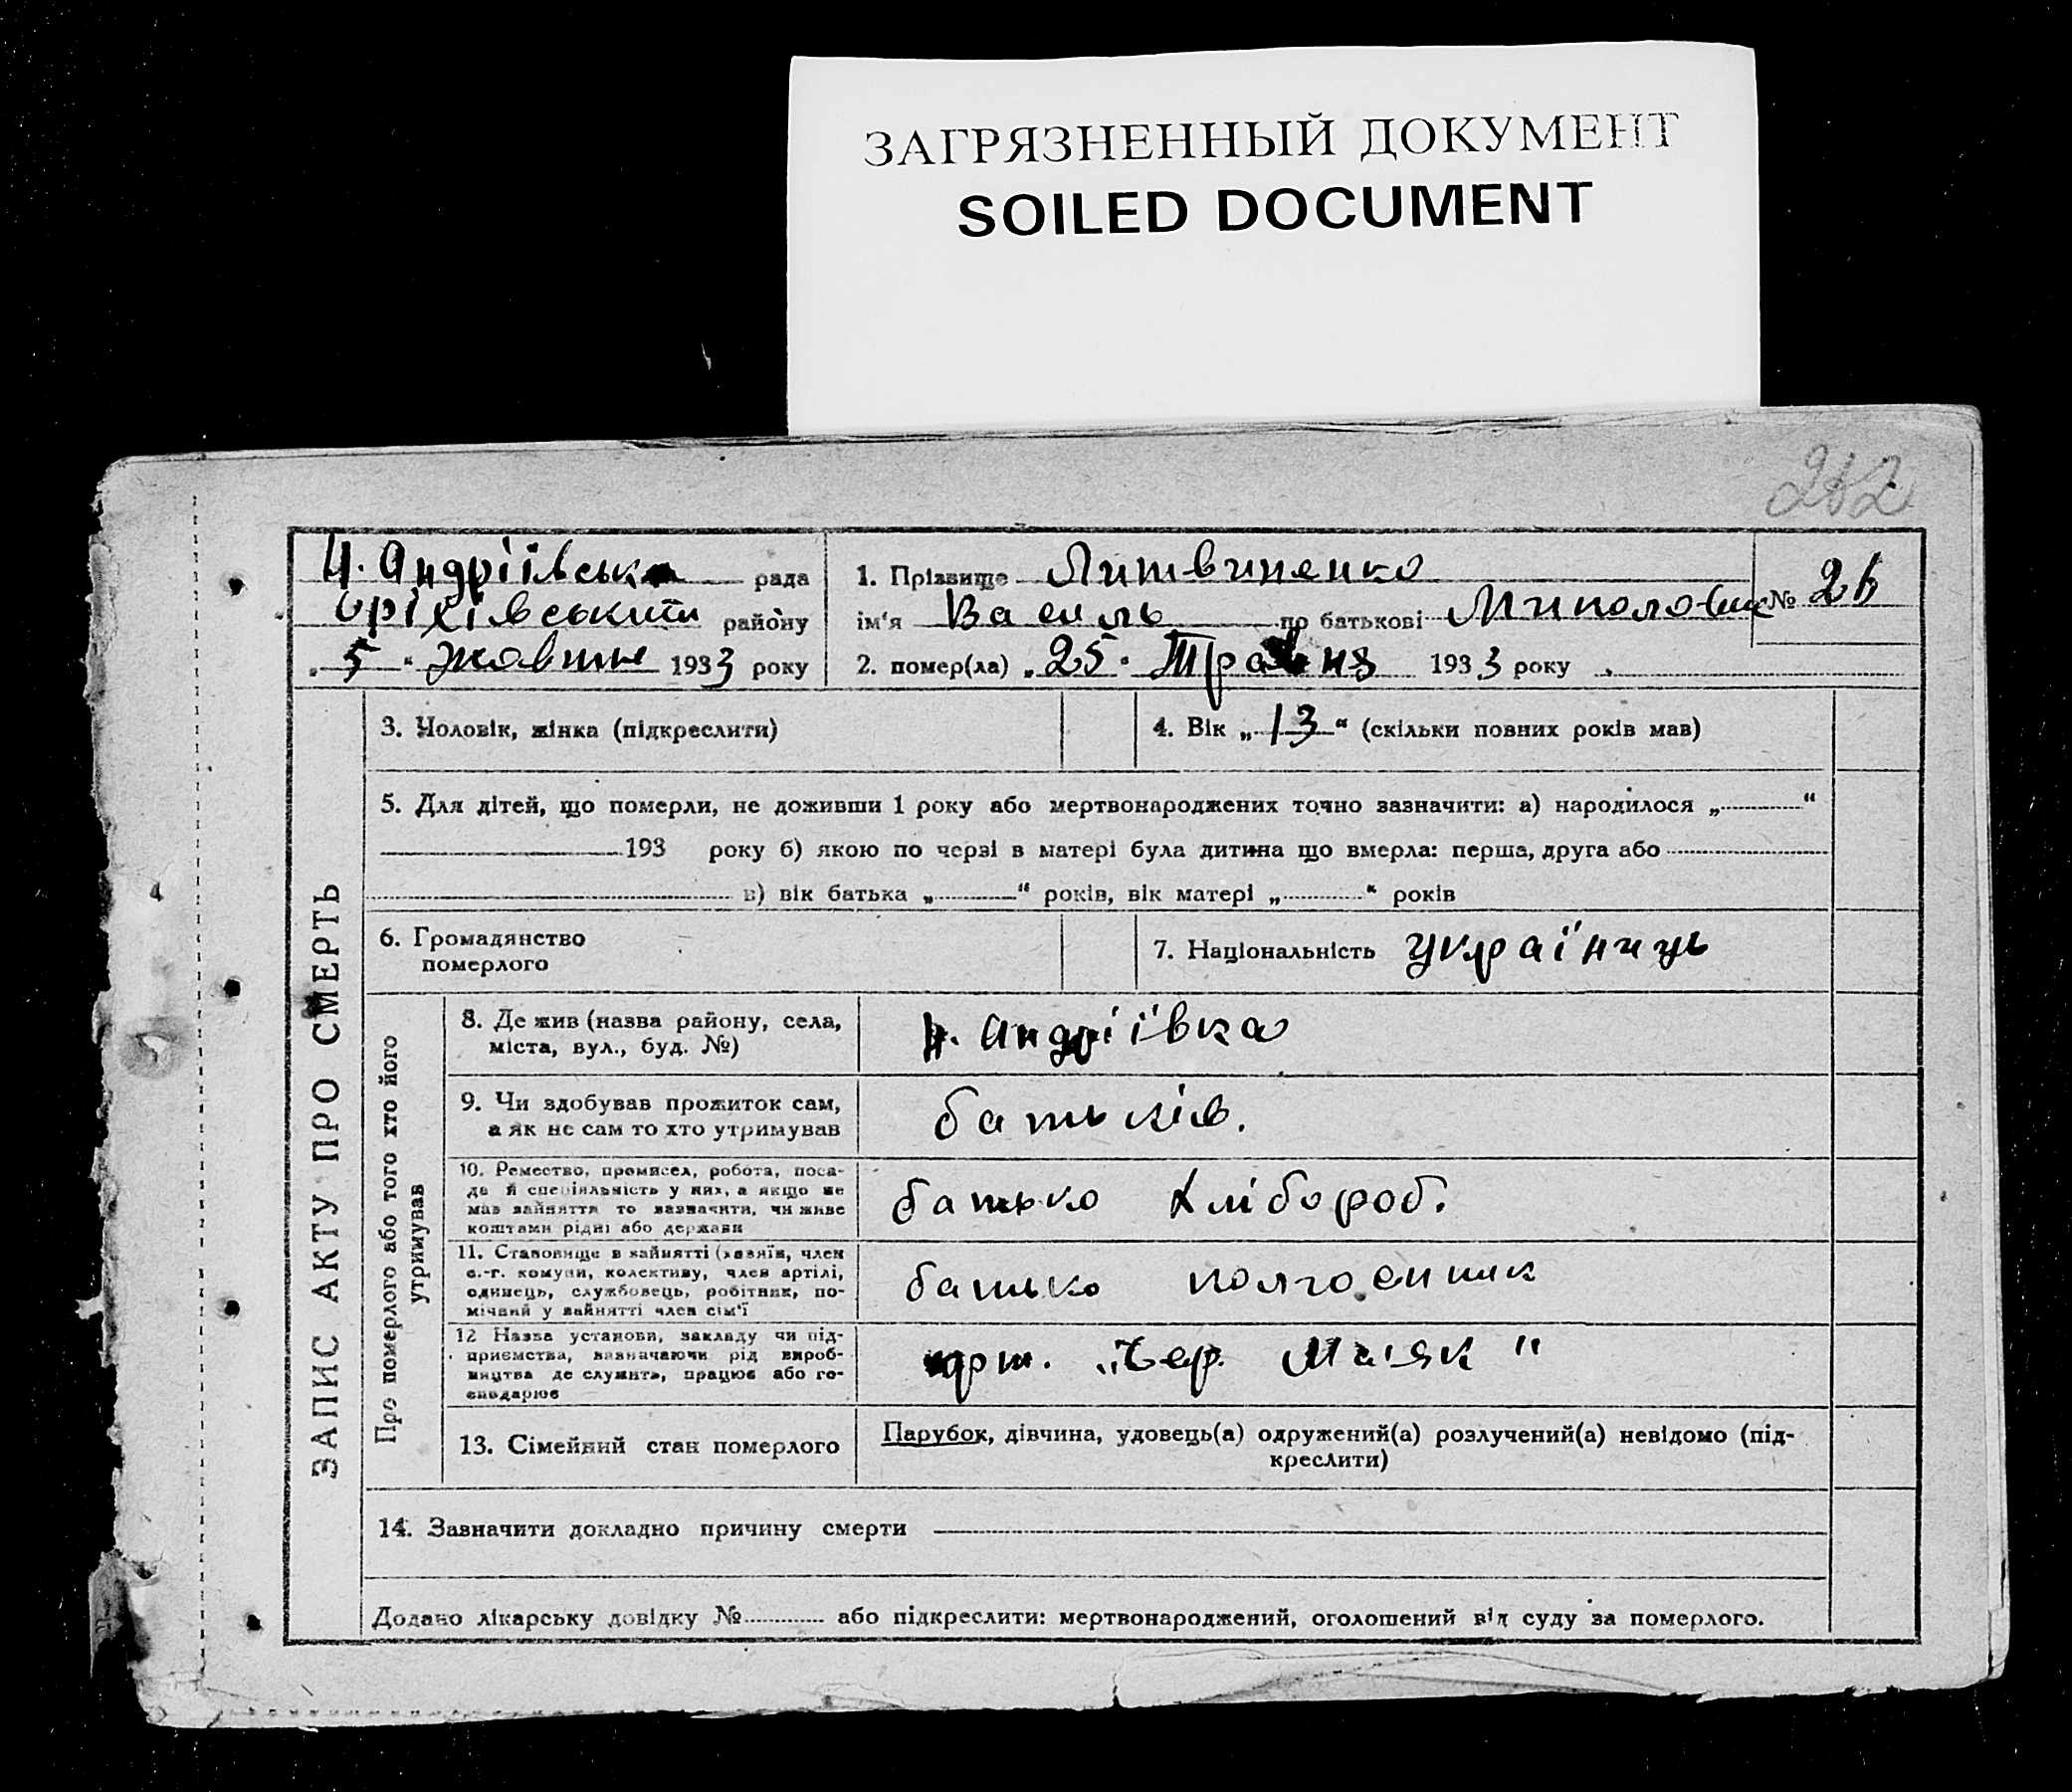 ЗАГРЯЗНЕННЫЙ ДОКУМЕНТ
SOILED DOCUMENT
262
Н. Андріївська рада
Оріхівський району
„5“ жовтня 1933 року
1. Прізвище Литвиненко
ім'я Василь по батькові Миколович № 26
2. помер(ла) „25“ Травня 1933 року
ЗАПИС АКТУ ПРО СМЕРТЬ
3. Чоловік, жінка (підкреслити)
4. Вік „13“ (скільки повних років мав)
5. Для дітей, що померли, не доживши 1 року або мертвонароджених точно зазначити: а) народилося „ “
193 року б) якою по черзі в матері була дитина що вмерла: перша, друга або
в) вік батька „ “ років, вік матері „ “ років
6. Громадянство
померлого
7. Національність українць
Про померлого або того хто його
утримував
8. Де жив (назва району, села,
міста, вул., буд. №)
Н. Андріївка
9. Чи здобував прожиток сам,
а як не сам то хто утримував
батьків.
10. Ремество, промисел, робота, поса-
да й спеціяльність у них, а якщо не
мав зайняття то зазначити, чи живе
коштами рідні або держави
батько хлібороб.
11. Становище в зайнятті (хазяїн, член
с.-г. комуни, колективу, член артілі,
одинець, службовець, робітник, по-
мічний у зайнятті член сім'ї
батько колгоспник
12 Назва установи, закладу чи під-
приємства, зазначаючи рід вироб-
ництва де служить, працює або го-
сподарює
арт. „Чер. Маяк"
13. Сімейний стан померлого
Парубок, дівчина, удовець(а) одружений(а) розлучений(а) невідомо (під-
креслити)
14. Зазначити докладно причину смерти
Додано лікарську довідку № або підкреслити: мертвонароджений, оголошений від суду за померлого.